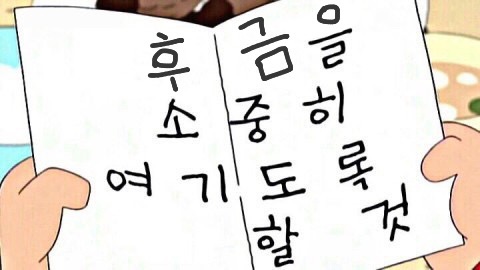 후금을
소중히
여기도록
할것